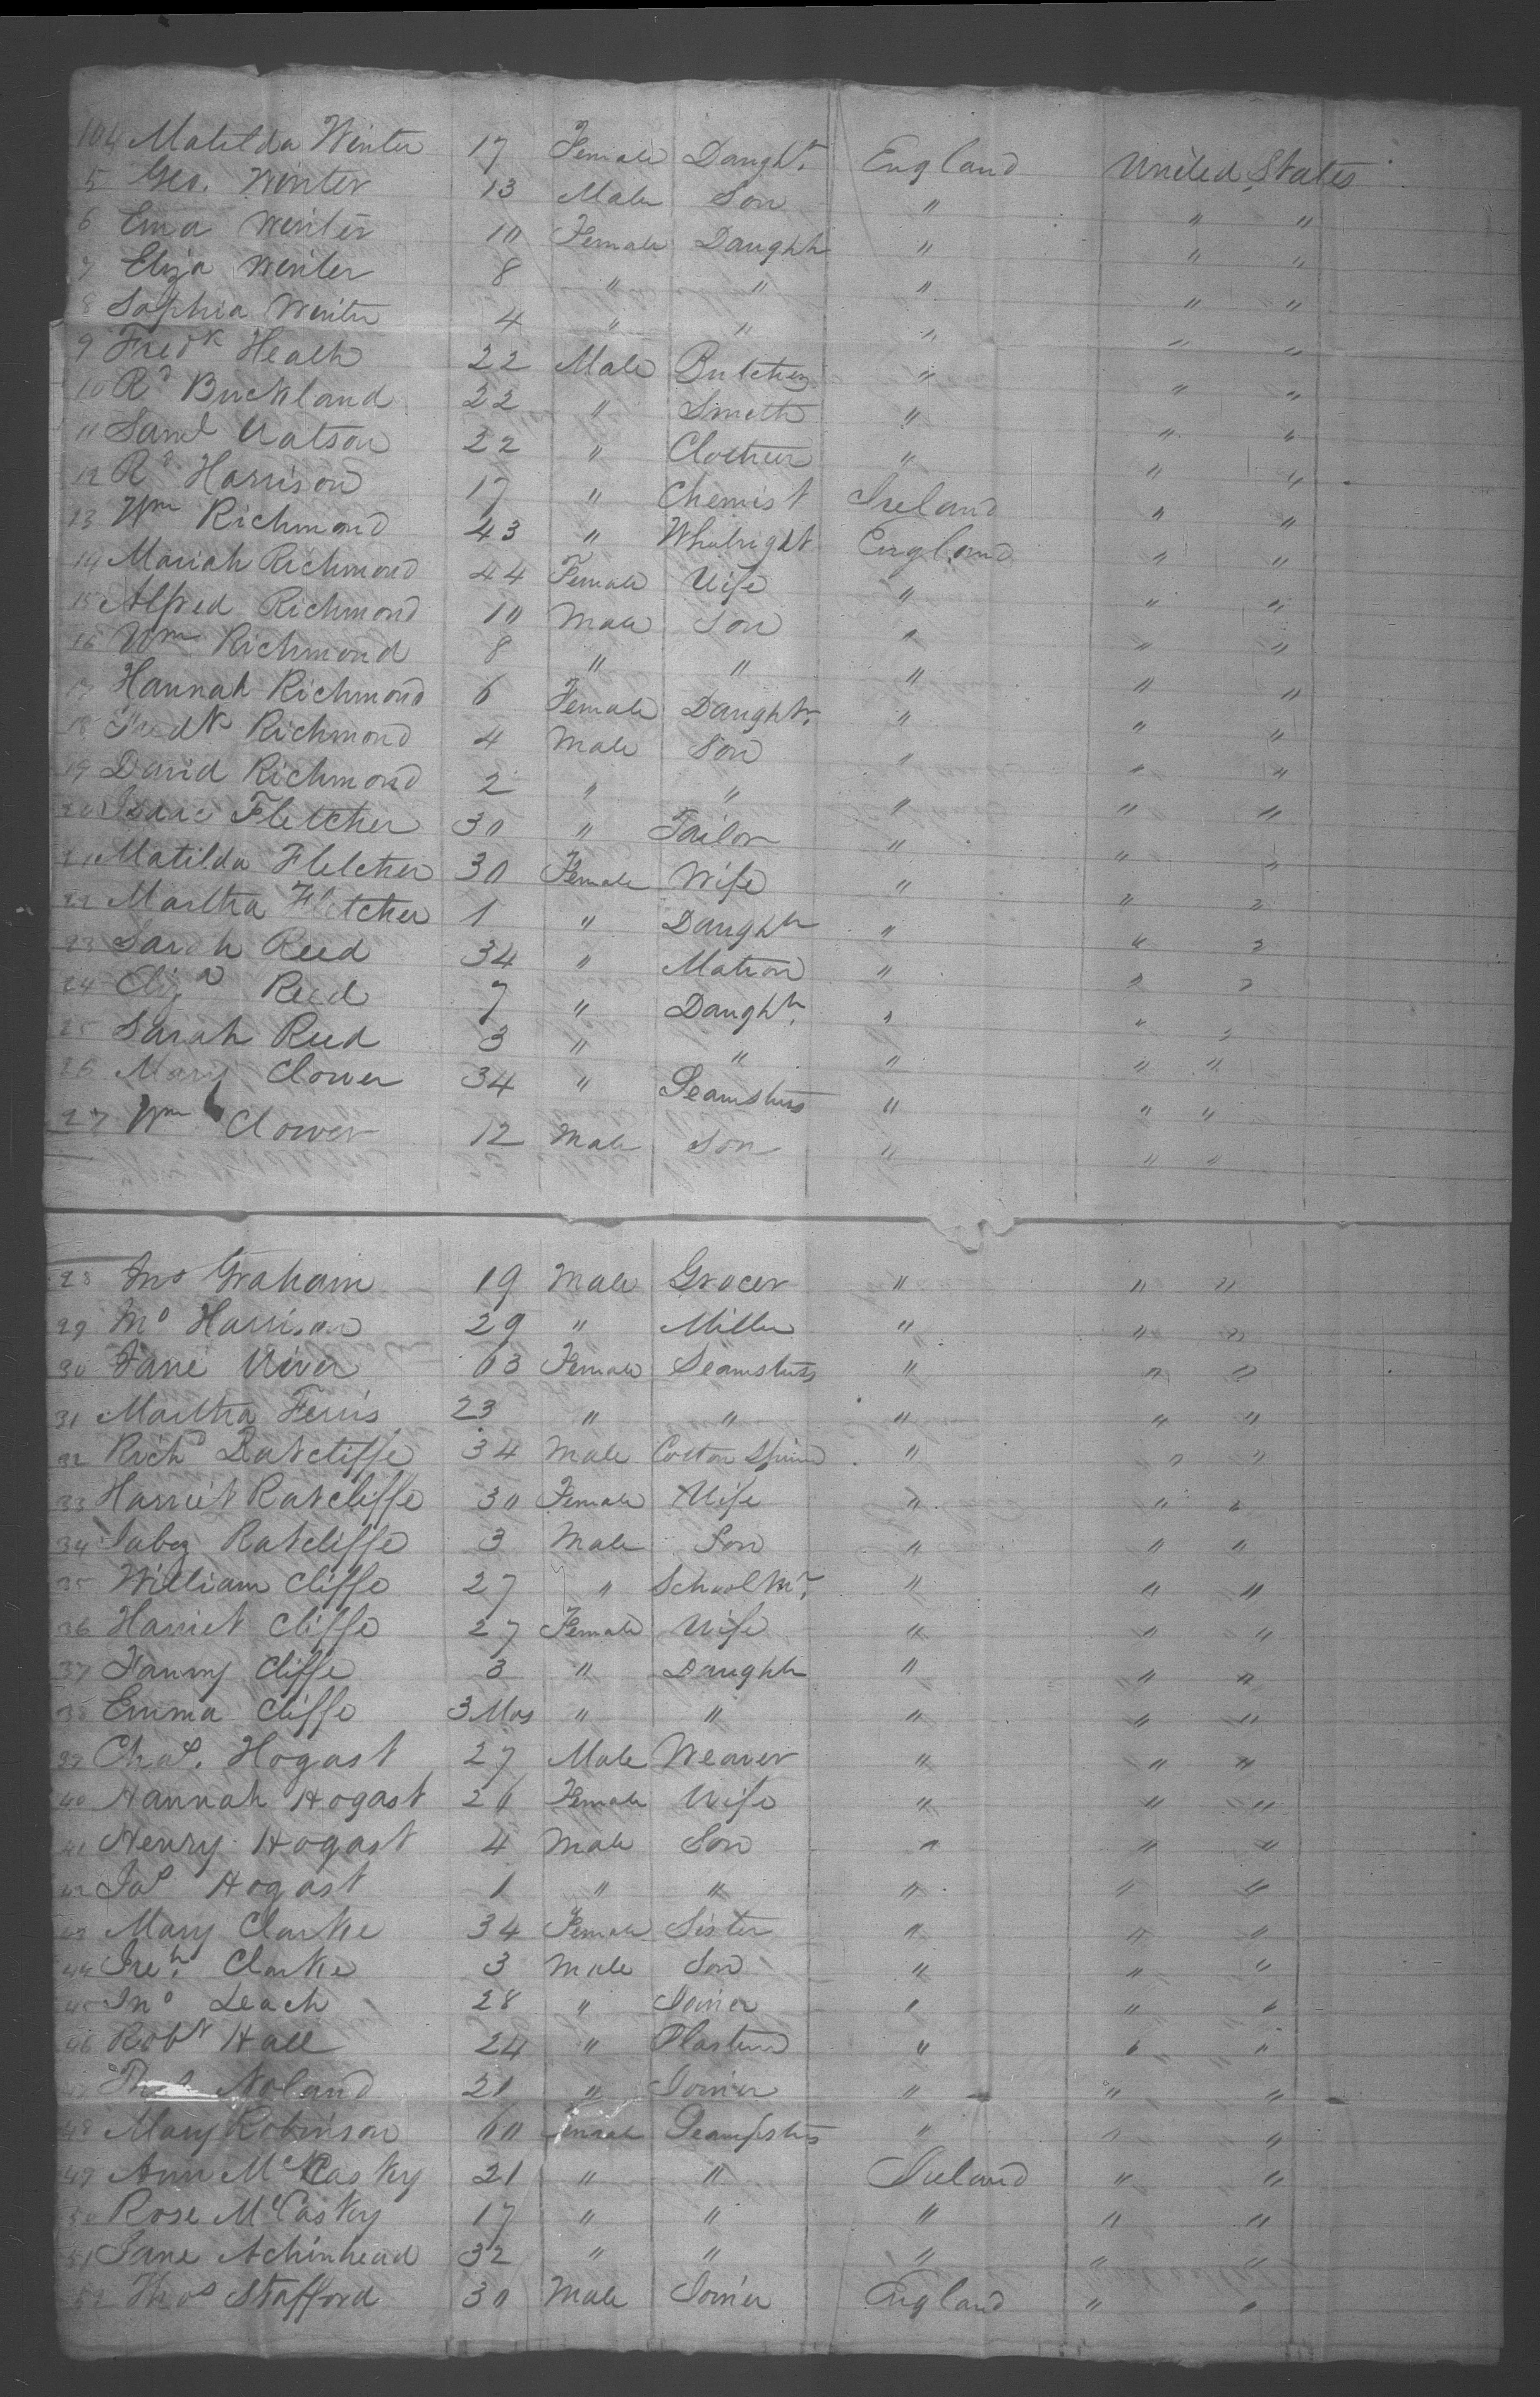 104 Matilda Winter 17 Female Daught. England United States
5 Geo. Winter 13 Male Son " " "
6 Ema Winter 10 Female Daughtr " " "
7 Eliza Winter 8 " " " " "
8 Sophia Winter 4 " " " " "
9 Fredk Heath 22 Male Butcher " " "
10 Rd Buckland 22 " Smith " " "
11 Saml Watson 22 " Clothier " " "
12 Rd Harrison 17 " Chemist Ireland " "
13 Wm Richmond 43 " Whelright England " "
14 Mariah Richmond 44 Female Wife " " "
15 Alfred Richmond 10 Male Son " " "
16 Wm Richmond 8 " " " " "
17 Hannah Richmond 6 Female Daughtr. " " "
18 Fredk Richmond 4 Male Son " " "
19 David Richmond 2 " " " " "
20 Isaac Fletcher 30 " Tailor " " "
21 Matilda Fletcher 30 Female Wife " " "
22 Martha Fletcher 1 " Daughtr " " "
23 Sarah Reed 34 " Matron " " "
24 Eliza Reed 7 " Daughtr. " " "
25 Sarah Reed 3 " " " " "
26 Mary Clower 34 " Seamstress " " "
27 Wm Clower 12 Male Son " " "
28 Jno Graham 19 Male Grocer " " "
29 Harrison 29 " Miller " " "
30 Jane 63 Female Seamstress " " "
31 Martha Ferris 23 " " " " "
32 Richd Ratcliffe 34 Male Cotton Spinner " " "
33 Harriet Ratcliffe 30 Female Wife " " "
34 Jabez Ratcliffe 3 Male Son " " "
35 William Cliffe 27 " School Mr. " " "
36 Harriet Cliffe 27 Female Wife " " "
37 Fanny Cliffe 3 " Daughtr " " "
38 Emma Cliffe 3 Mos " " " " "
39 Chas. Hogast 27 Male Weaver " " "
40 Hannah Hogast 26 Female Wife " " "
41 Henry Hogast 4 Male Son " " "
42 Jas Hogast 1 " " " " "
43 Mary Clarke 34 Female Sister " " "
44 Clarke 3 Male Son " " "
45 Jno Leach 28 " Joiner " " "
46 Robt Hall 24 " Plasterer " " "
47 Thos Noland 21 " Joiner " " "
48 Mary Robinson 60 Female Seamstress " " "
49 Ann McCaskey 21 " " Ireland " "
50 Rose McCaskey 17 " " " " "
51 Jane Achinhead 32 " " " " "
52 Thos Stafford 30 Male Joiner England " "